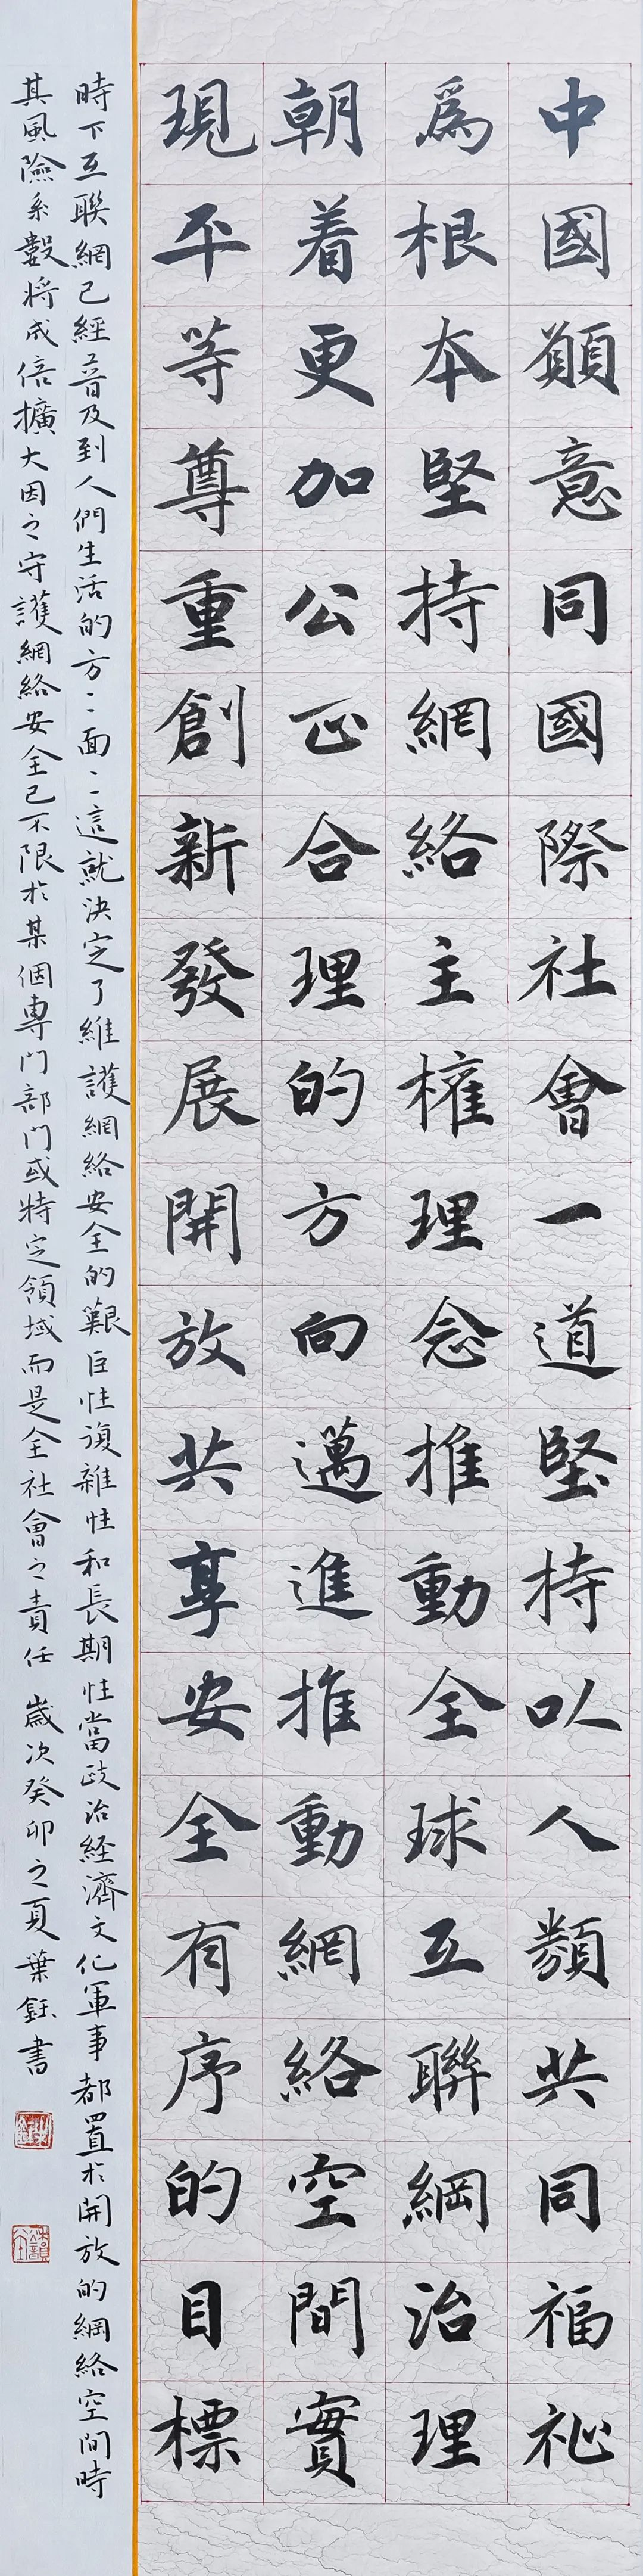 中國願意同國際社會一道堅持以人類共同福祉
爲根本堅持網絡主權理念推動全球互聯網治理
朝着更加公正合理的方向邁進推動網絡空間實
現平等尊重創新發展開放共享安全有序的目標
時下互聯網已經普及到人們生活的方〻面〻這就決定了維護網絡安全的艱巨性複雜性和長期性當政治經濟文化軍事都置於開放的網絡空間時
其風險系數將成倍擴大因之守護網絡安全已不限於某個專門部門或特定領域而是全社會之責任 歲次癸卯之夏葉鈺書